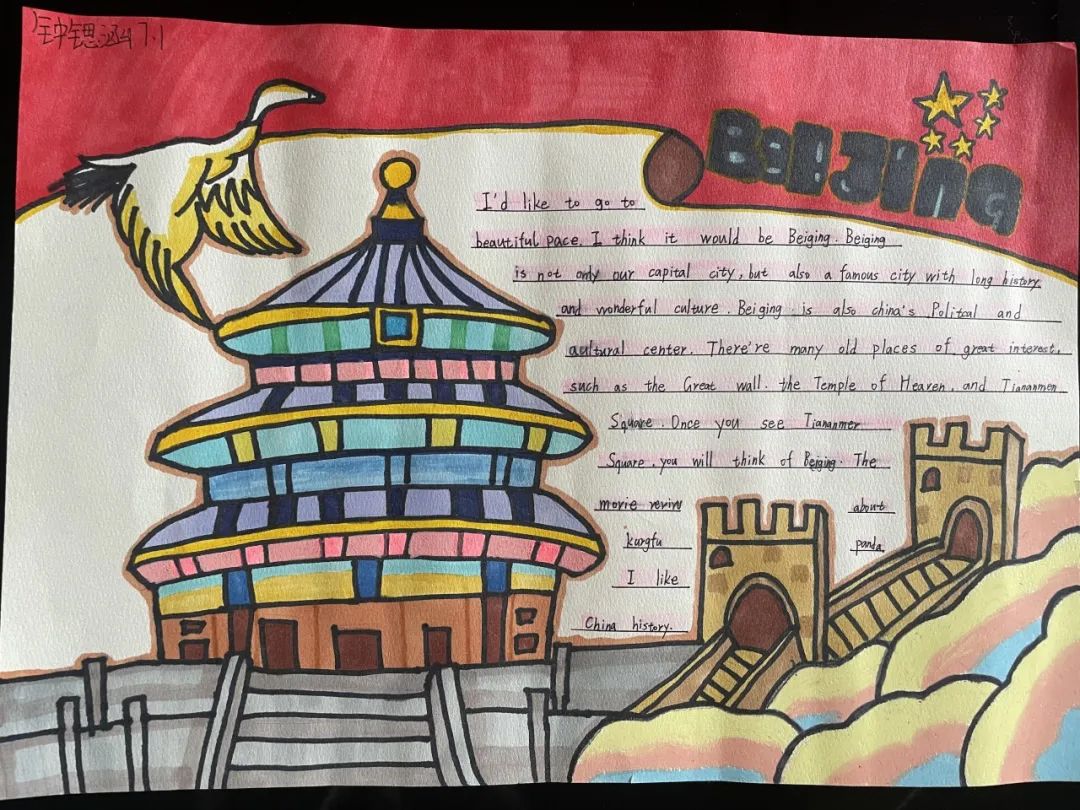 钟锶涵 7.1
BeiJing
I'd like to go to
beautiful pace. I think it would be Beiging. Beiging
is not only our capital city, but also a famous city with long history
and wonderful culture. Beiging is also china's Politcal and
cultural center. There're many old places of great interest,
such as the Great wall. the Temple of Heaven, and Tiananmen
Square. Once you see Tiananmer
Square, you will think of Beiging. The
movie reviw about
kungfu panda
I like
China history.